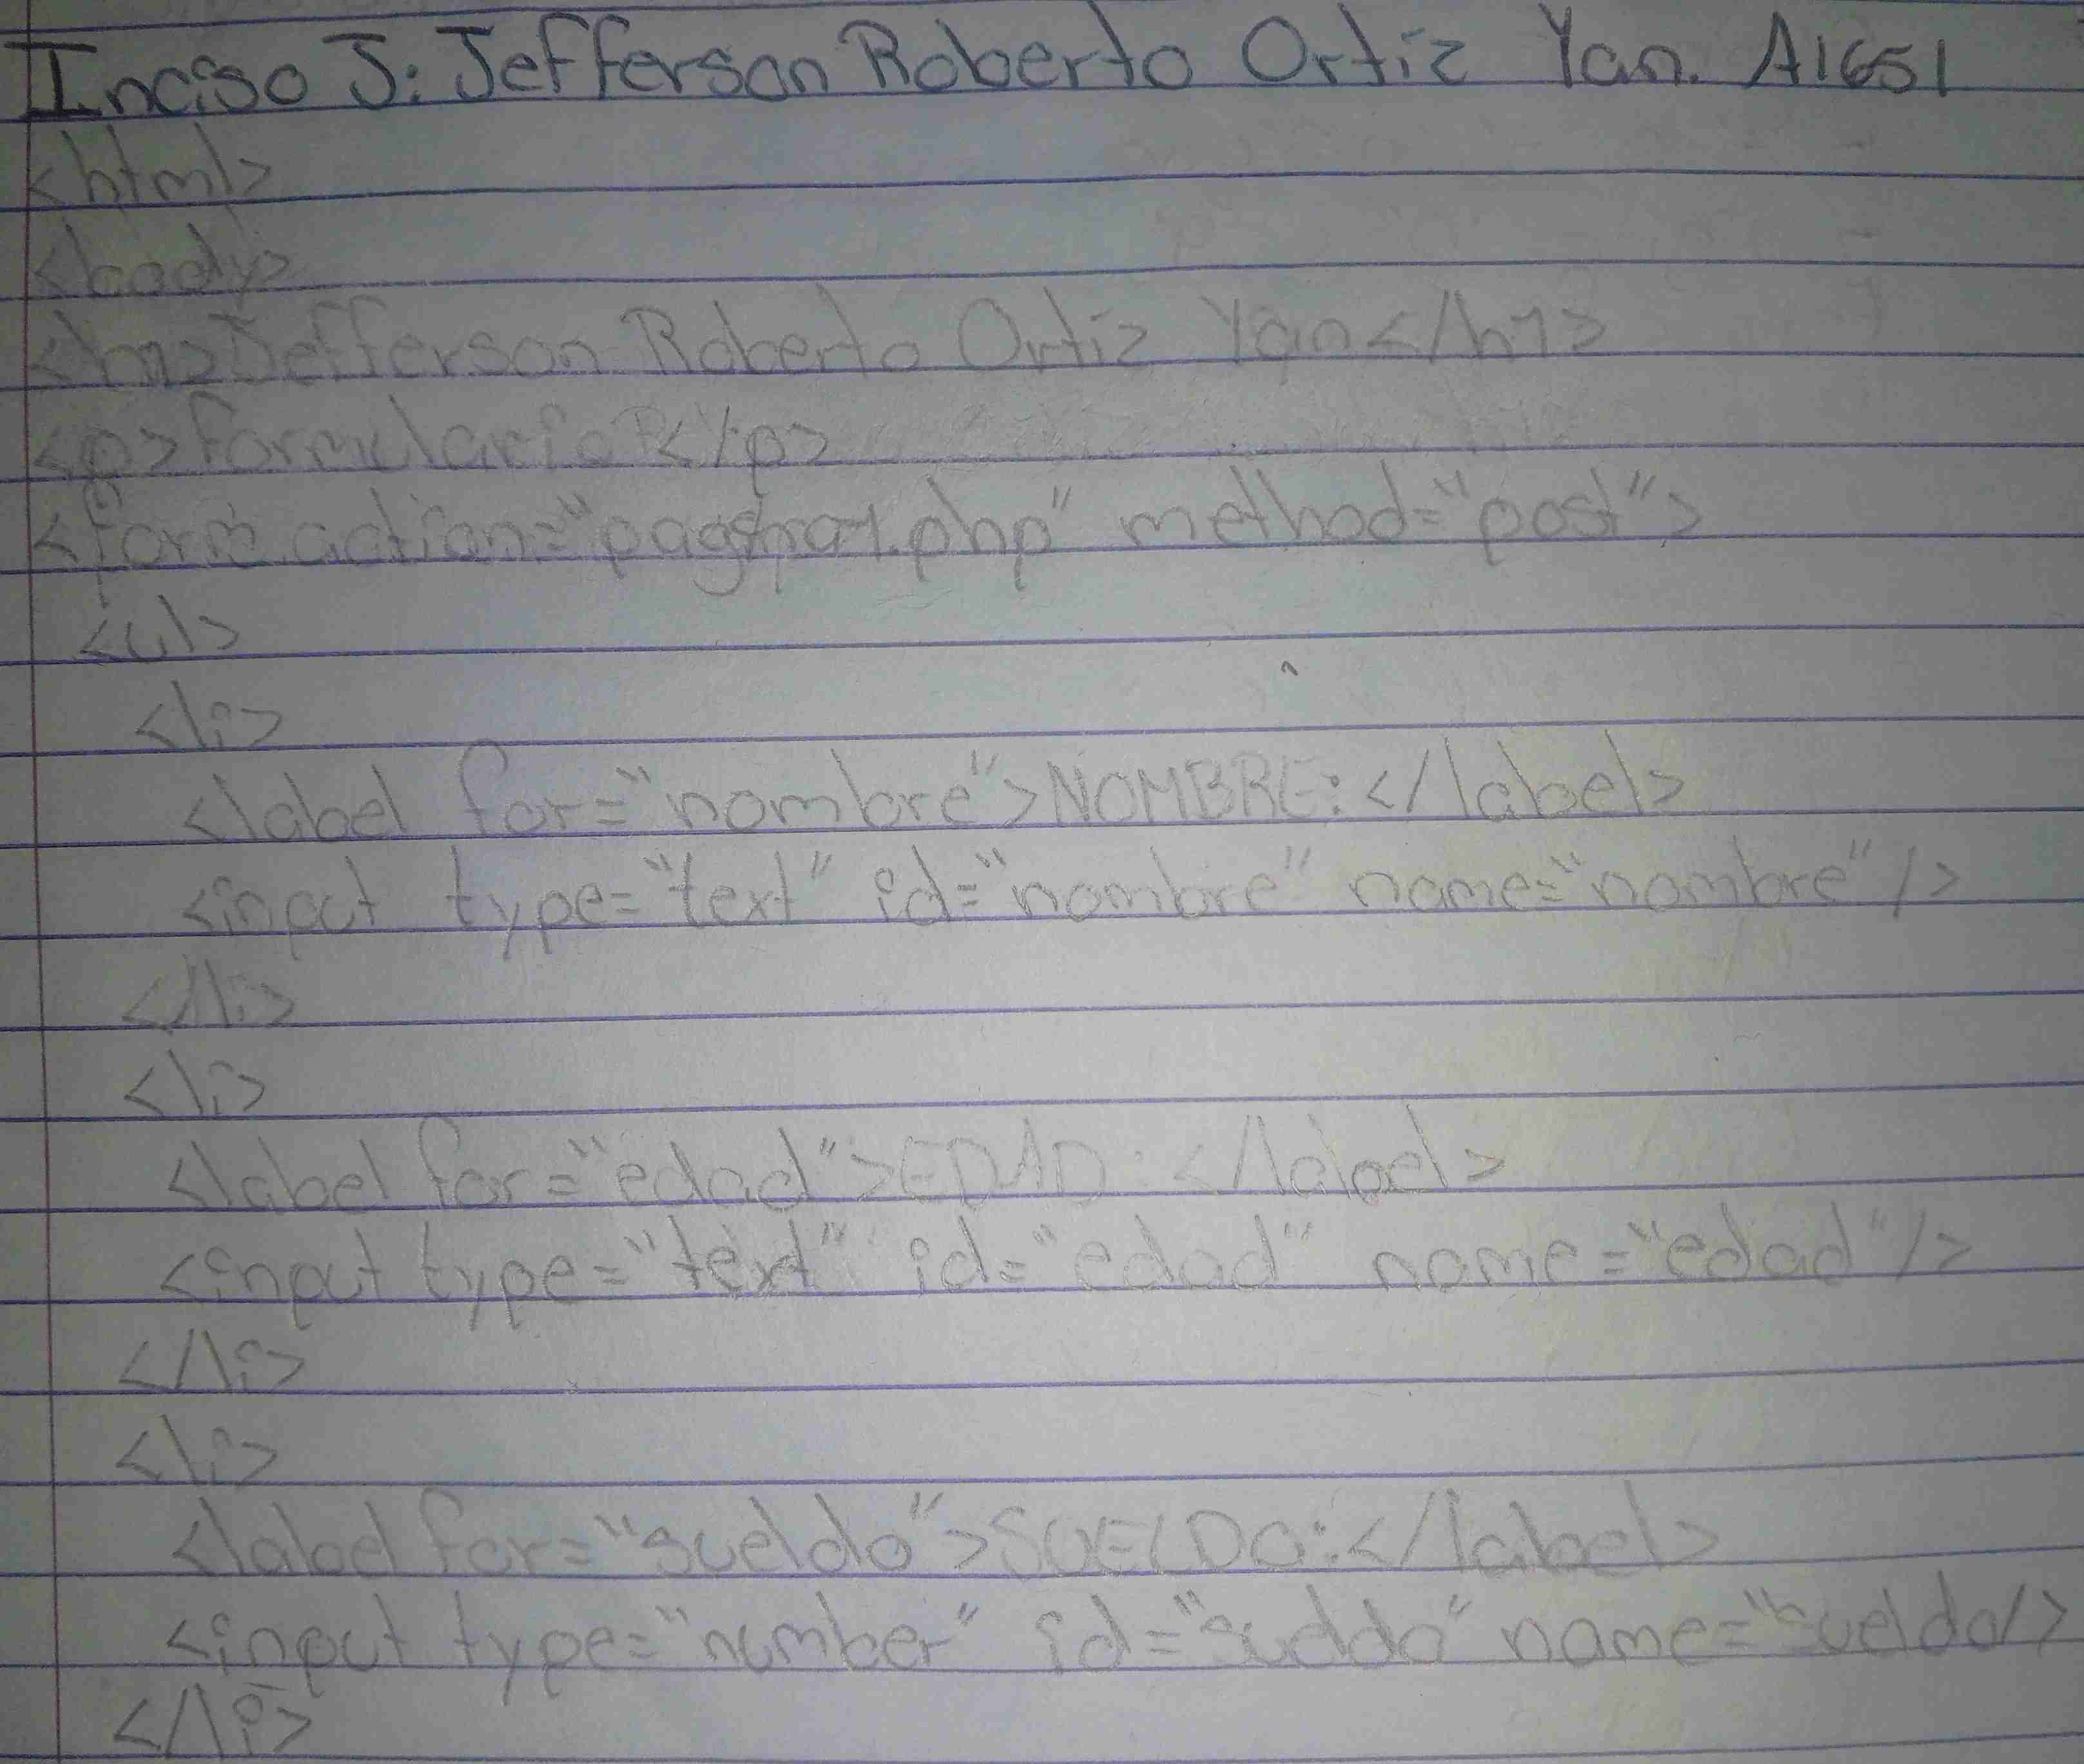 Inciso J: Jefferson Roberto Ortiz Yan. A1651
<html>
<body>
<h1>Jefferson Roberto Ortiz Yan</h1>
<p>Formulario</p>
<form action="pagina1.php" method="post">
<ul>
<li>
<label for="nombre">NOMBRE:</label>
<input type="text" id="nombre" name="nombre"/>
</li>
<li>
<label for="edad">EDAD:</label>
<input type="text" id="edad" name="edad"/>
</li>
<li>
<label for="sueldo">SUELDO:</label>
<input type="number" id="sueldo" name="sueldo/>
</li>